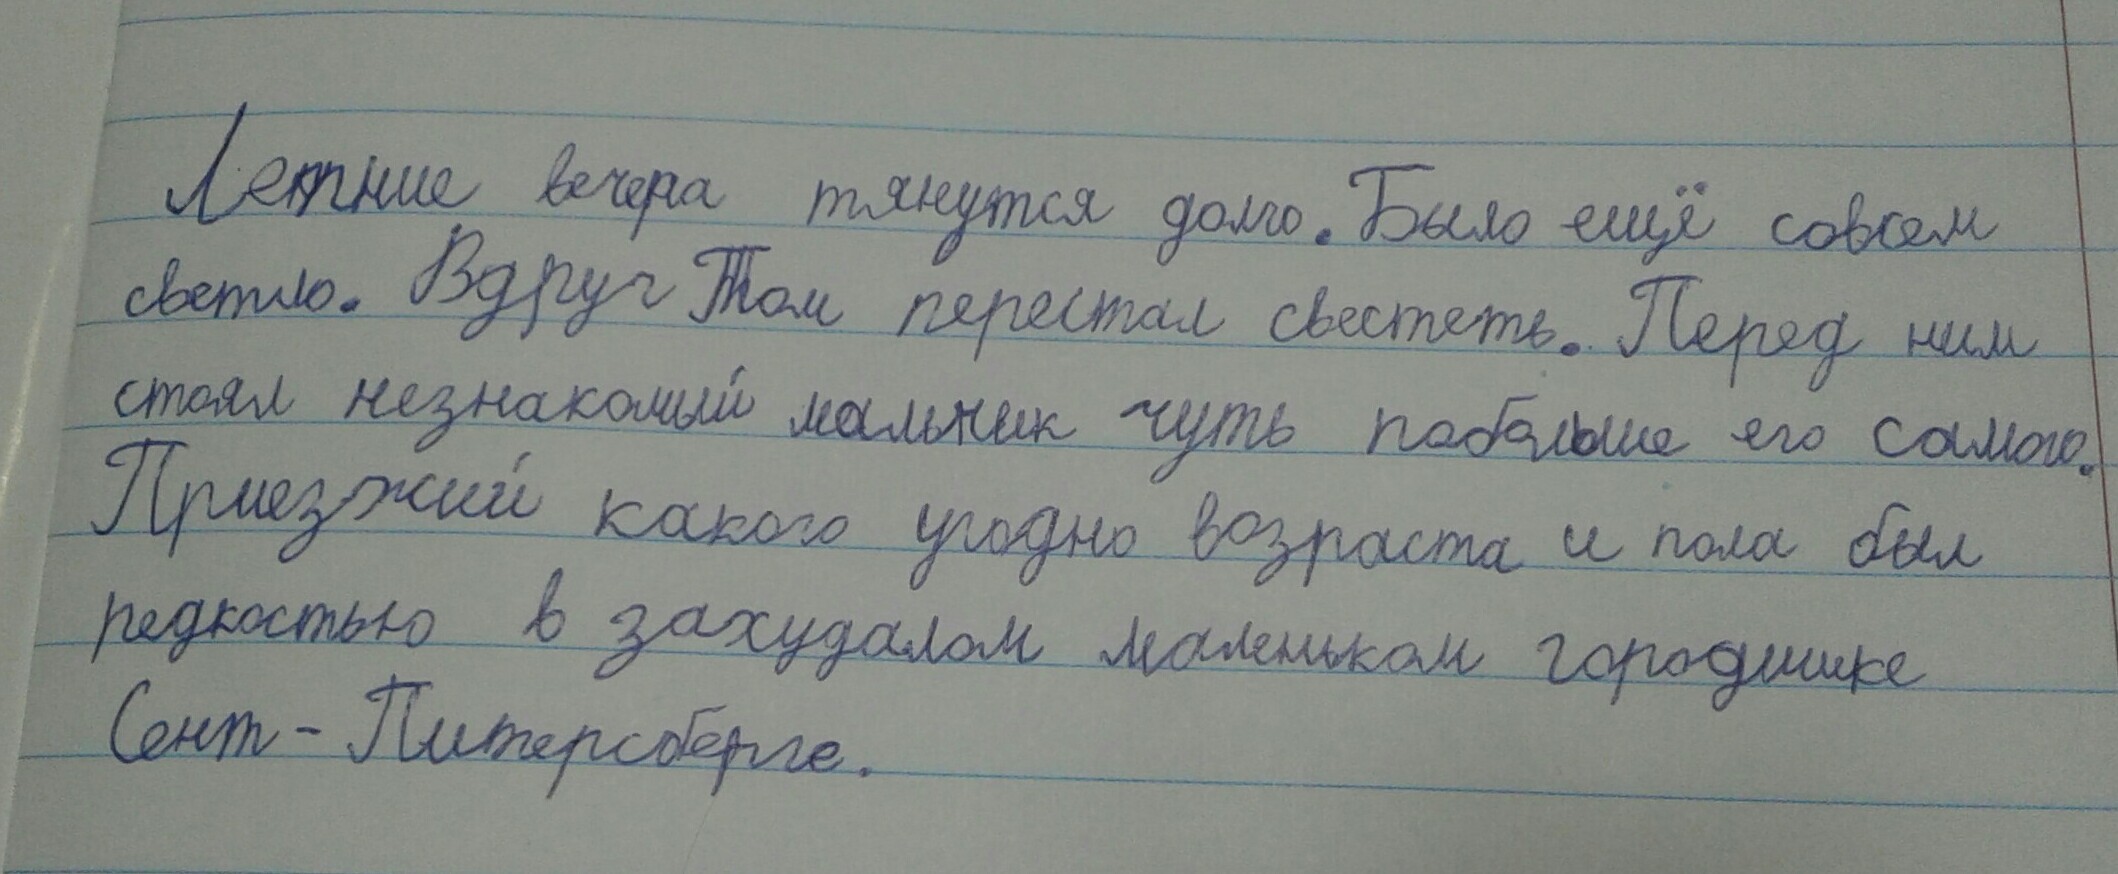 Летние вечера тянутся долго. Было ещё совсем
светло. Вдруг Том перестал свестеть. Перед ним
стоял незнакомый мальчик чуть побольше его самого.
Приезжий какого угодно возраста и пола был
редкостью в захудалом маленьком городишке
Сент-Питерсберге.